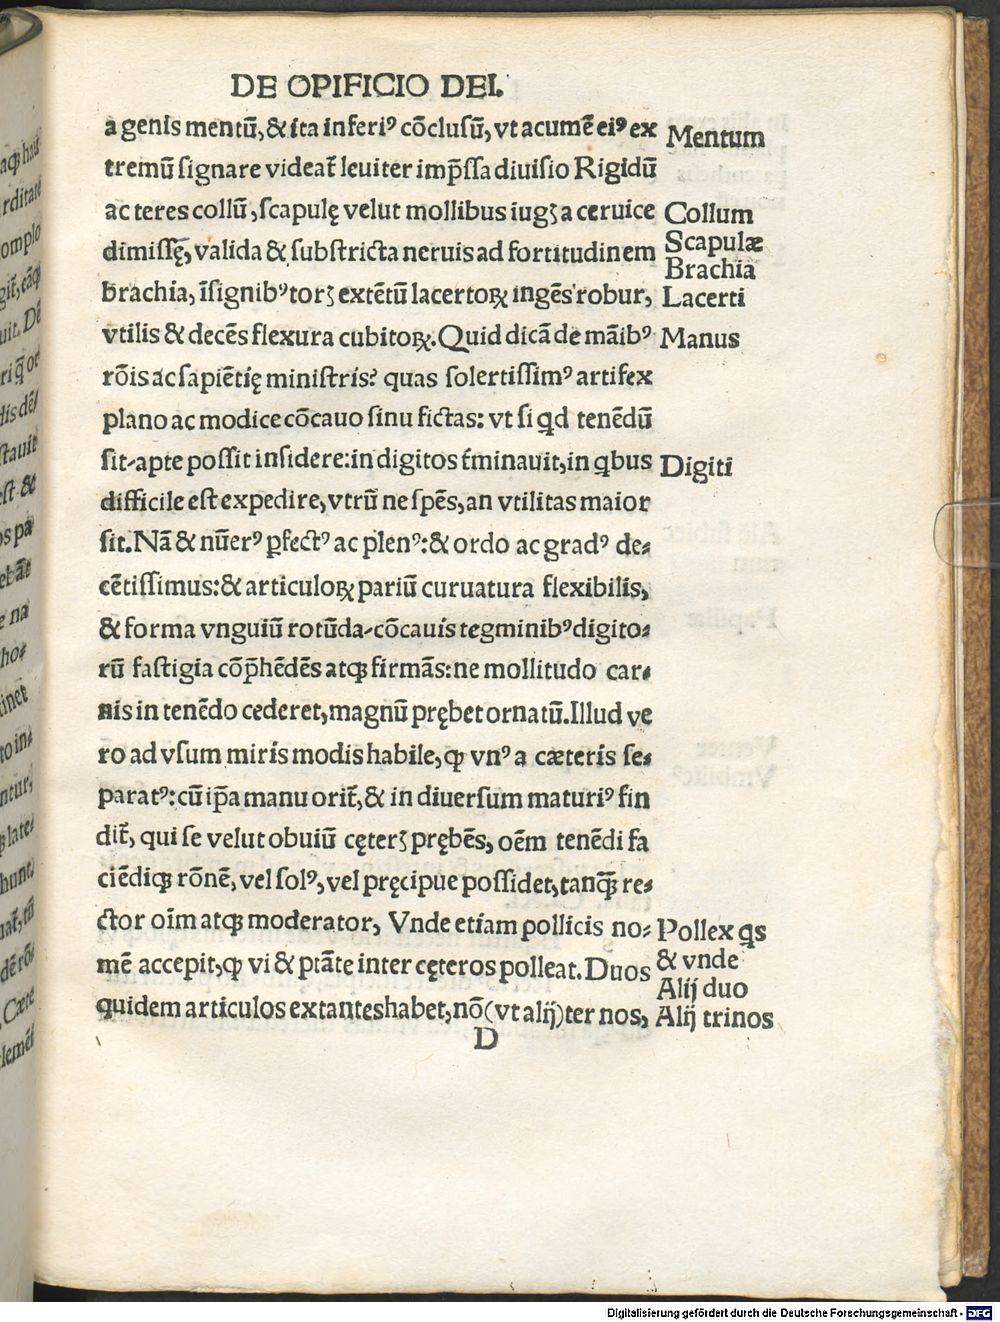 DE OPIFICIO DEI.
a genis mentū, & ita inferiꝰ cōclusū, vt acumē eiꝰ ex
Mentum
tremū signare videat̃ leuiter imp̄ssa diuisio Rigidū
ac teres collū, scapulę velut mollibus iugꝫ a ceruice
Collum
dimissę, valida & substricta neruis ad fortitudinem
Scapulæ
Brachia
brachia, īsignibꝰ torꝫ extētū lacertoꝝ ingēs robur,
Lacerti
vtilis & decēs flexura cubitoꝝ. Quid dicā de māibꝰ
Manus
rōis ac sapiētię ministris? quas solertissimꝰ artifex
plano ac modice cōcauo sinu fictas: vt si qd tenēdū
sit-apte possit insidere: in digitos t̃minauit, in qbus
Digiti
difficile est expedire, vtrū ne spēs, an vtilitas maior
sit. Nā & nūerꝰ ꝑfectꝰ ac plenꝰ: & ordo ac gradꝰ de⸗
cētissimus: & articuloꝝ pariū curuatura flexibilis,
& forma vnguiū rotūda-cōcauis tegminibꝰ digito⸗
rū fastigia cōp̄hēdēs atqꝫ firmās: ne mollitudo car⸗
nis in tenēdo cederet, magnū prębet ornatū. Illud ve
ro ad vsum miris modis habile, ꝙ vnꝰ a cæteris se⸗
paratꝰ: cū ip̄a manu orit̃, & in diuersum maturiꝰ fin
dit̃, qui se velut obuiū cęterꝫ prębēs, oēm tenēdi fa
ciēdiqꝫ rōnē, vel solꝰ, vel pręcipue possidet, tanqꝫ̄ re⸗
ctor oīm atqꝫ moderator, Vnde etiam pollicis no⸗
Pollex qs
mē accepit, ꝙ vi & ptāte inter cęteros polleat. Duos
& vnde
Alij duo
quidem articulos extantes habet, nō (vt alij) ternos,
Alij trinos
D
Digitalisierung gefördert durch die Deutsche Forschungsgemeinschaft - DFG